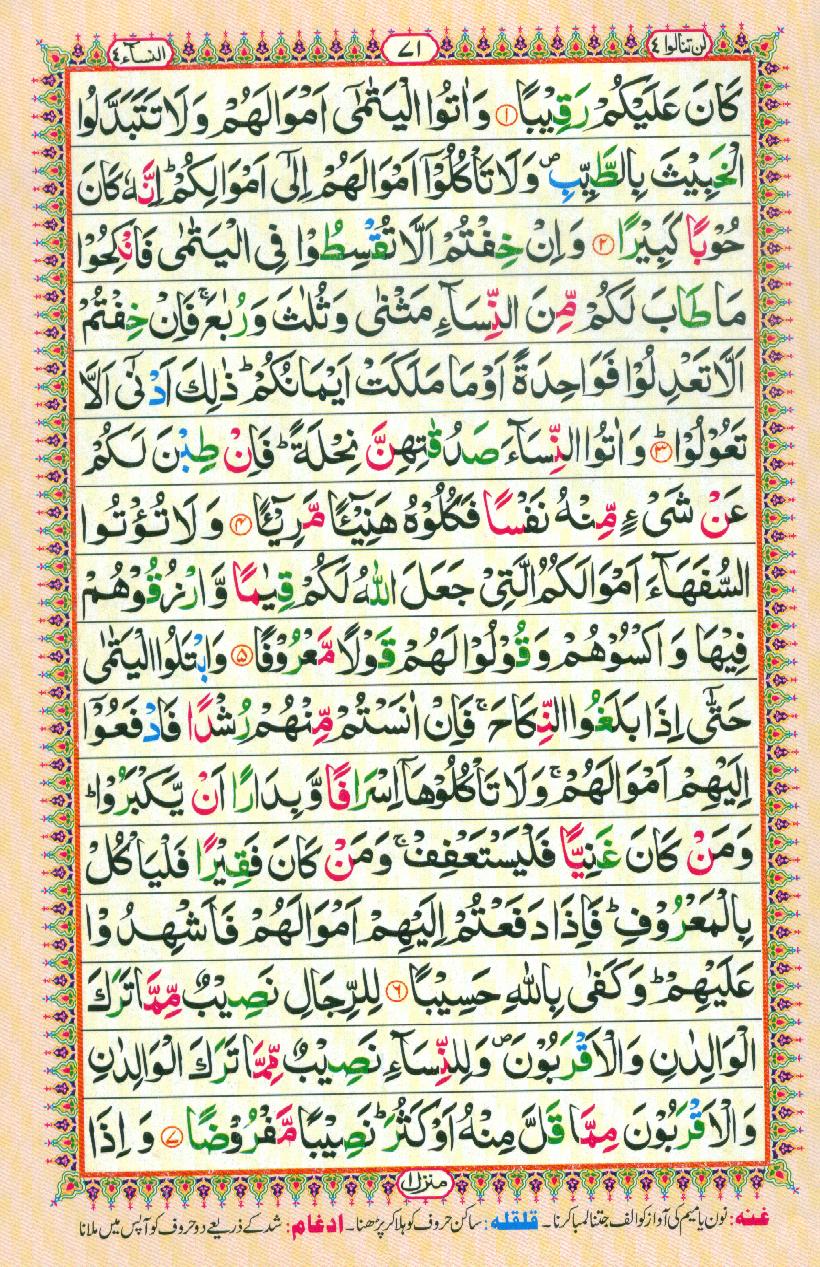 لن تنالوا ٤
٧١
النسآء ٤
كَانَ عَلَيْكُمْ رَقِيْبًا ۝١ وَاٰتُوا الْيَتٰمٰٓى اَمْوَالَهُمْ وَلَا تَتَبَدَّلُوا
الْخَبِيْثَ بِالطَّيِّبِ ۪ وَلَا تَاْكُلُوْٓا اَمْوَالَهُمْ اِلٰٓى اَمْوَالِكُمْ ؕ اِنَّهٗ كَانَ
حُوْبًا كَبِيْرًا ۝٢ وَاِنْ خِفْتُمْ اَلَّا تُقْسِطُوْا فِى الْيَتٰمٰى فَانْكِحُوْا
مَا طَابَ لَكُمْ مِّنَ النِّسَآءِ مَثْنٰى وَثُلٰثَ وَرُبٰعَ ۚ فَاِنْ خِفْتُمْ
اَلَّا تَعْدِلُوْا فَوَاحِدَةً اَوْ مَا مَلَكَتْ اَيْمَانُكُمْ ؕ ذٰلِكَ اَدْنٰٓى اَلَّا
تَعُوْلُوْا ؕ ۝٣ وَاٰتُوا النِّسَآءَ صَدُقٰتِهِنَّ نِحْلَةً ؕ فَاِنْ طِبْنَ لَكُمْ
عَنْ شَىْءٍ مِّنْهُ نَفْسًا فَكُلُوْهُ هَنِيْٓـًٔا مَّرِيْٓـًٔا ۝٤ وَلَا تُؤْتُوا
السُّفَهَآءَ اَمْوَالَكُمُ الَّتِىْ جَعَلَ اللّٰهُ لَكُمْ قِيٰمًا وَّارْزُقُوْهُمْ
فِيْهَا وَاكْسُوْهُمْ وَقُوْلُوْا لَهُمْ قَوْلًا مَّعْرُوْفًا ۝٥ وَابْتَلُوا الْيَتٰمٰى
حَتّٰٓى اِذَا بَلَغُوا النِّكَاحَ ۚ فَاِنْ اٰنَسْتُمْ مِّنْهُمْ رُشْدًا فَادْفَعُوْٓا
اِلَيْهِمْ اَمْوَالَهُمْ ۚ وَلَا تَاْكُلُوْهَآ اِسْرَافًا وَّبِدَارًا اَنْ يَّكْبَرُوْا ؕ
وَمَنْ كَانَ غَنِيًّا فَلْيَسْتَعْفِفْ ۚ وَمَنْ كَانَ فَقِيْرًا فَلْيَاْكُلْ
بِالْمَعْرُوْفِ ؕ فَاِذَا دَفَعْتُمْ اِلَيْهِمْ اَمْوَالَهُمْ فَاَشْهِدُوْا
عَلَيْهِمْ ؕ وَكَفٰى بِاللّٰهِ حَسِيْبًا ۝٦ لِلرِّجَالِ نَصِيْبٌ مِّمَّا تَرَكَ
الْوَالِدٰنِ وَالْاَقْرَبُوْنَ ۪ وَلِلنِّسَآءِ نَصِيْبٌ مِّمَّا تَرَكَ الْوَالِدٰنِ
وَالْاَقْرَبُوْنَ مِمَّا قَلَّ مِنْهُ اَوْ كَثُرَ ؕ نَصِيْبًا مَّفْرُوْضًا ۝٧ وَاِذَا
منزل ١
غنه: نون یا میم کی آواز کو الف جتنا لمبا کرنا۔ قلقله: ساکن حروف کو ہلا کر پڑھنا۔ ادغام: شد کے ذریعے دو حروف کو آپس میں ملانا